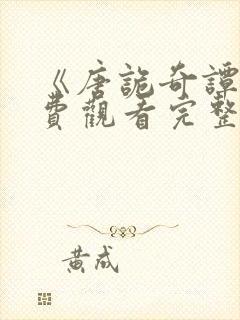 《唐詭奇譚
費觀看完整
黃成